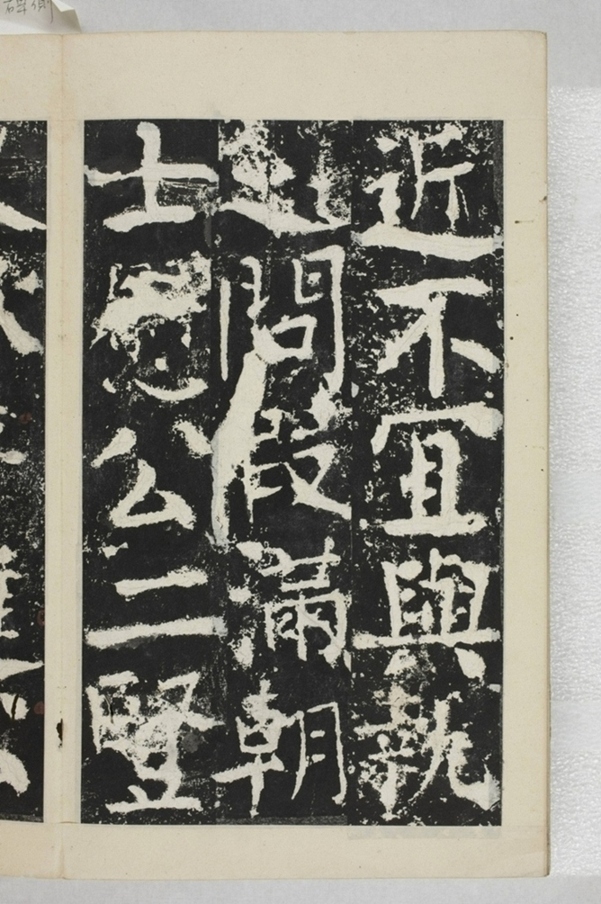 近不宜與執
問假滿朝
士慰公二竪